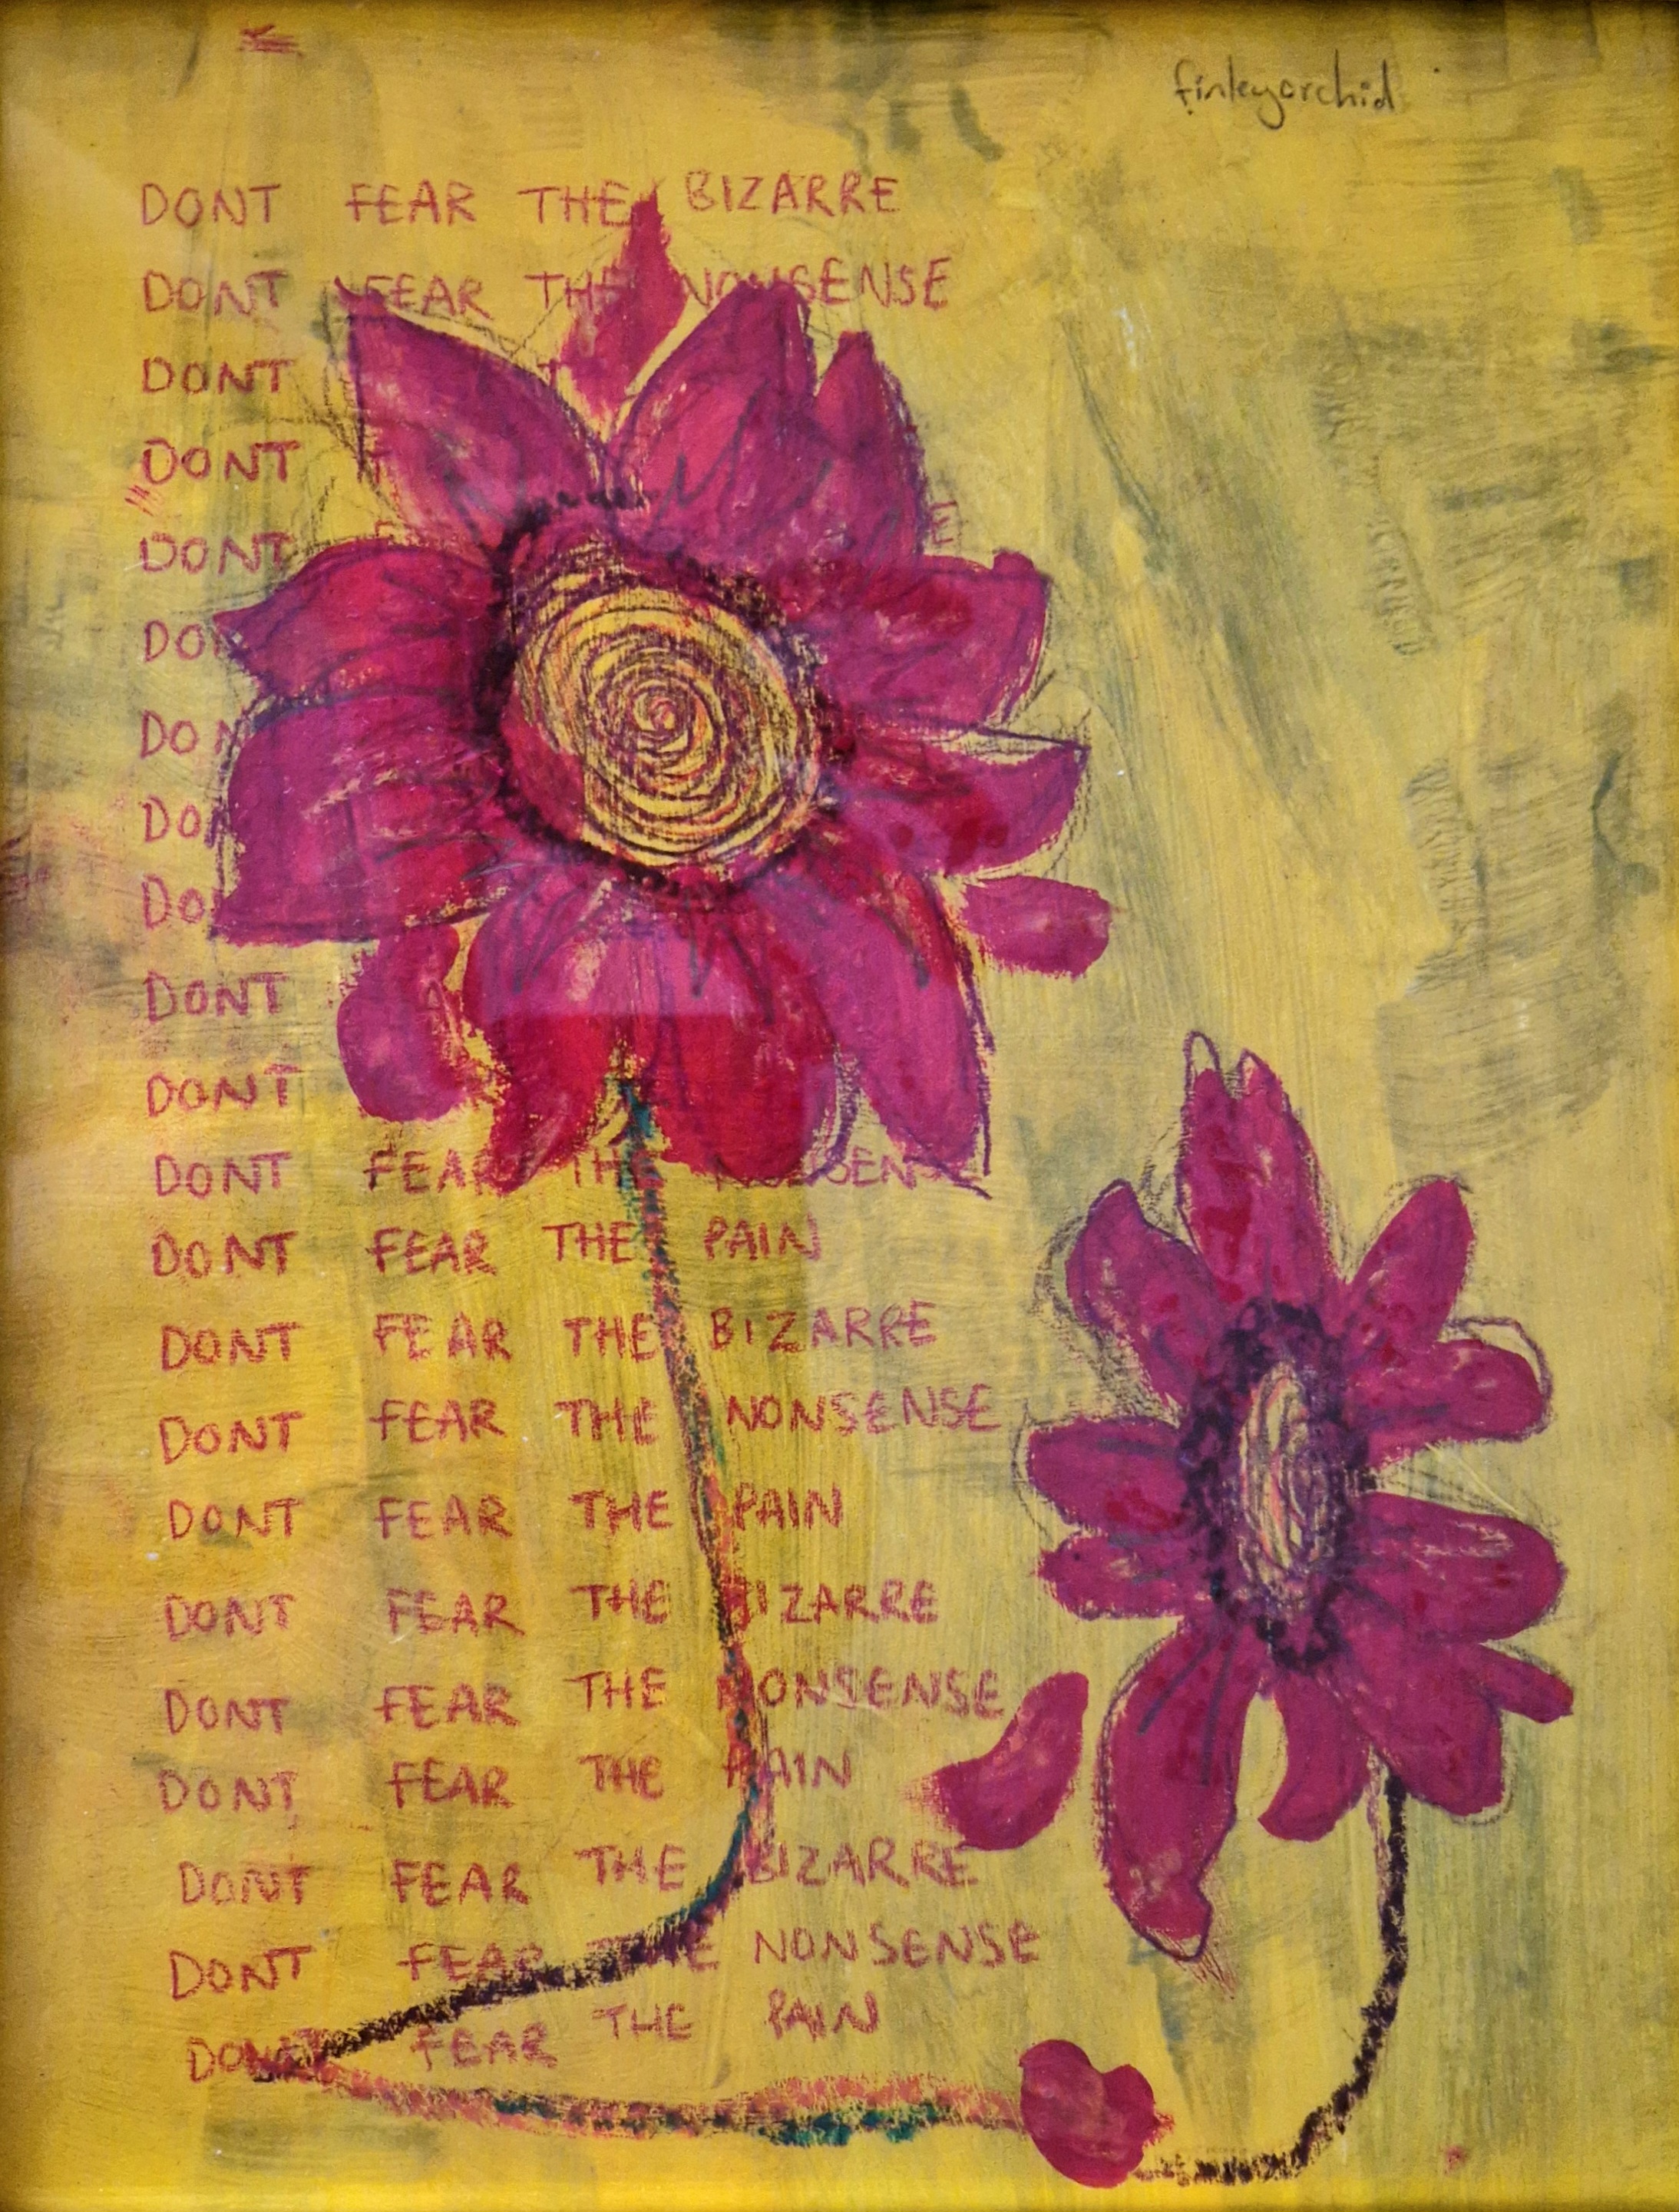 finleyorchid
DONT FEAR THE BIZARRE
DONT FEAR THE NONSENSE
DONT
DONT
DONT
DONT
DONT
DONT FEAR THE
DONT FEAR THE PAIN
DONT FEAR THE BIZARRE
DONT FEAR THE NONSENSE
DONT FEAR THE PAIN
DONT FEAR THE BIZARRE
DONT FEAR THE NONSENSE
DONT FEAR THE PAIN
DONT FEAR THE BIZARRE
DONT FEAR THE NONSENSE
DONT FEAR THE PAIN